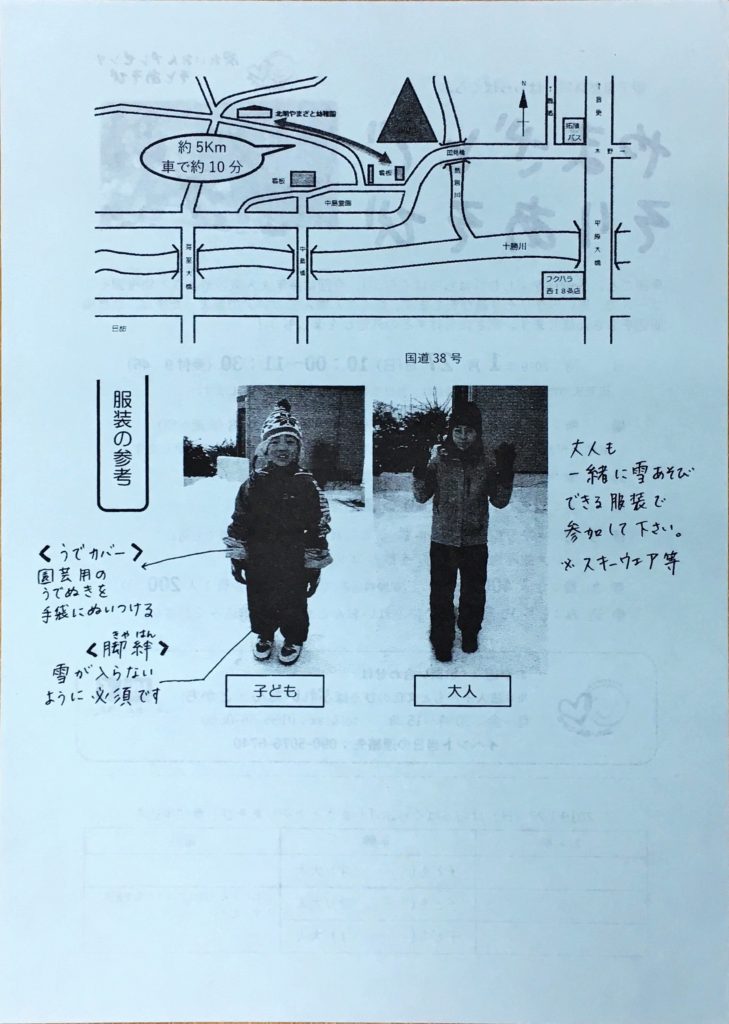 北明やまざと幼稚園
約5Km
車で約10分
看板
看板
国見橋
拓殖
バス
木野
然別川
中島霊園
十勝川
平原大橋
中島橋
フクハラ
西18条店
国道38号
服装の参考
大人も
一緒に雪あそび
できる服装で
参加して下さい。
※スキーウェア等
<うでカバー>
園芸用の
うでぬきを
手袋にぬいつける
きゃはん
<脚絆>
雪が入らない
ように必須です
子ども
大人